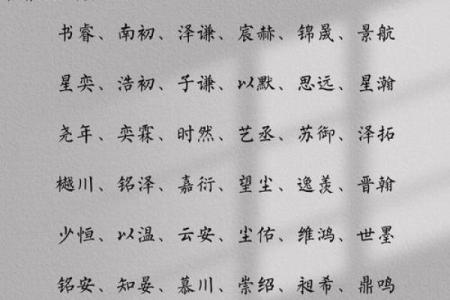 书睿、南初、泽谦、宸赫、锦晟、景航
星奕、浩初、子谦、以默、思远、星瀚
尧年、奕霖、时然、艺丞、苏御、泽拓
樾川、铭泽、嘉衍、望尘、逸羡、晋翰
少恒、以温、云安、尘佑、维鸿、世墨
铭安、知晏、慕川、崇绍、昶希、鼎鸣